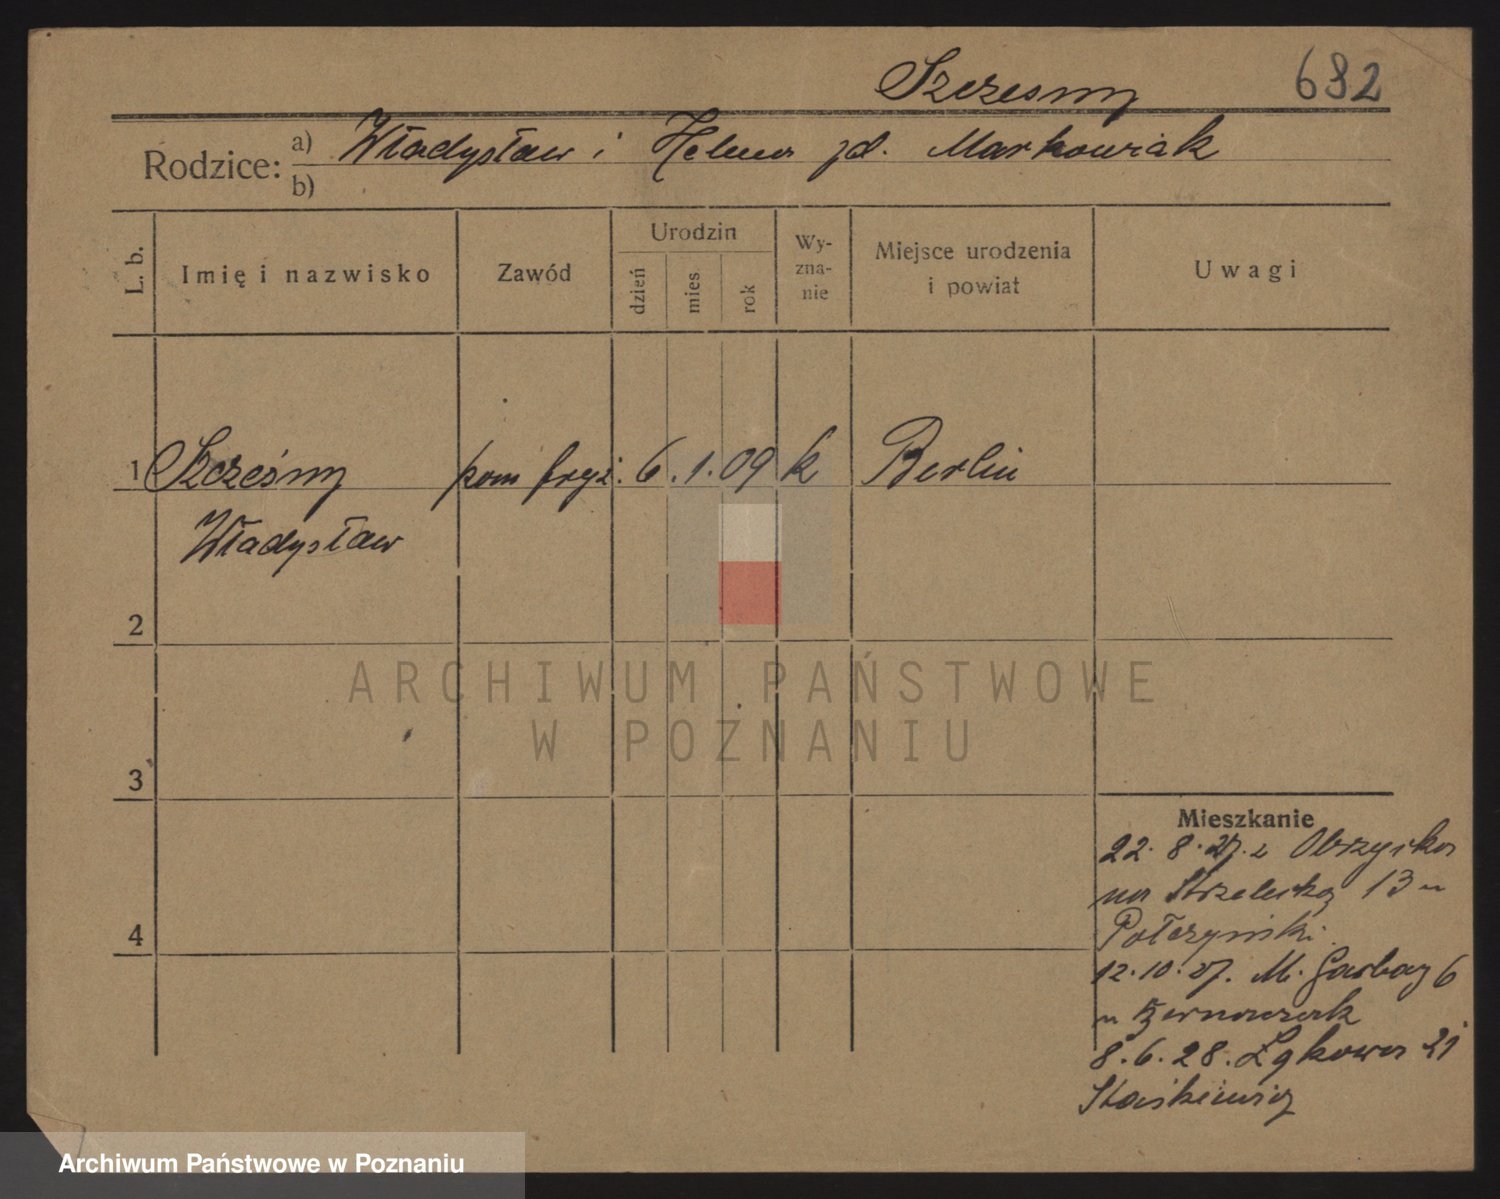 Szczesny 682
Rodzice: a) Władysław i Helena zd. Markowiak
b)
L. b.
Imię i nazwisko
Zawód
Urodzin
dzień
mies
rok
Wy-
zna-
nie
Miejsce urodzenia
i powiat
Uwagi
1 Szcześny pom fryz. 6. 1. 09 k Berlin
Władysław
2
3
4
Mieszkanie
22. 8. 27. z Obrzycka
na Strzelecką 13 u
Połczyński
12. 10. 27. M. Garbary 6
u
8. 6. 28. Łąkowa 21
Staśkiewicz
ARCHIWUM PAŃSTWOWE
W POZNANIU
Archiwum Państwowe w Poznaniu